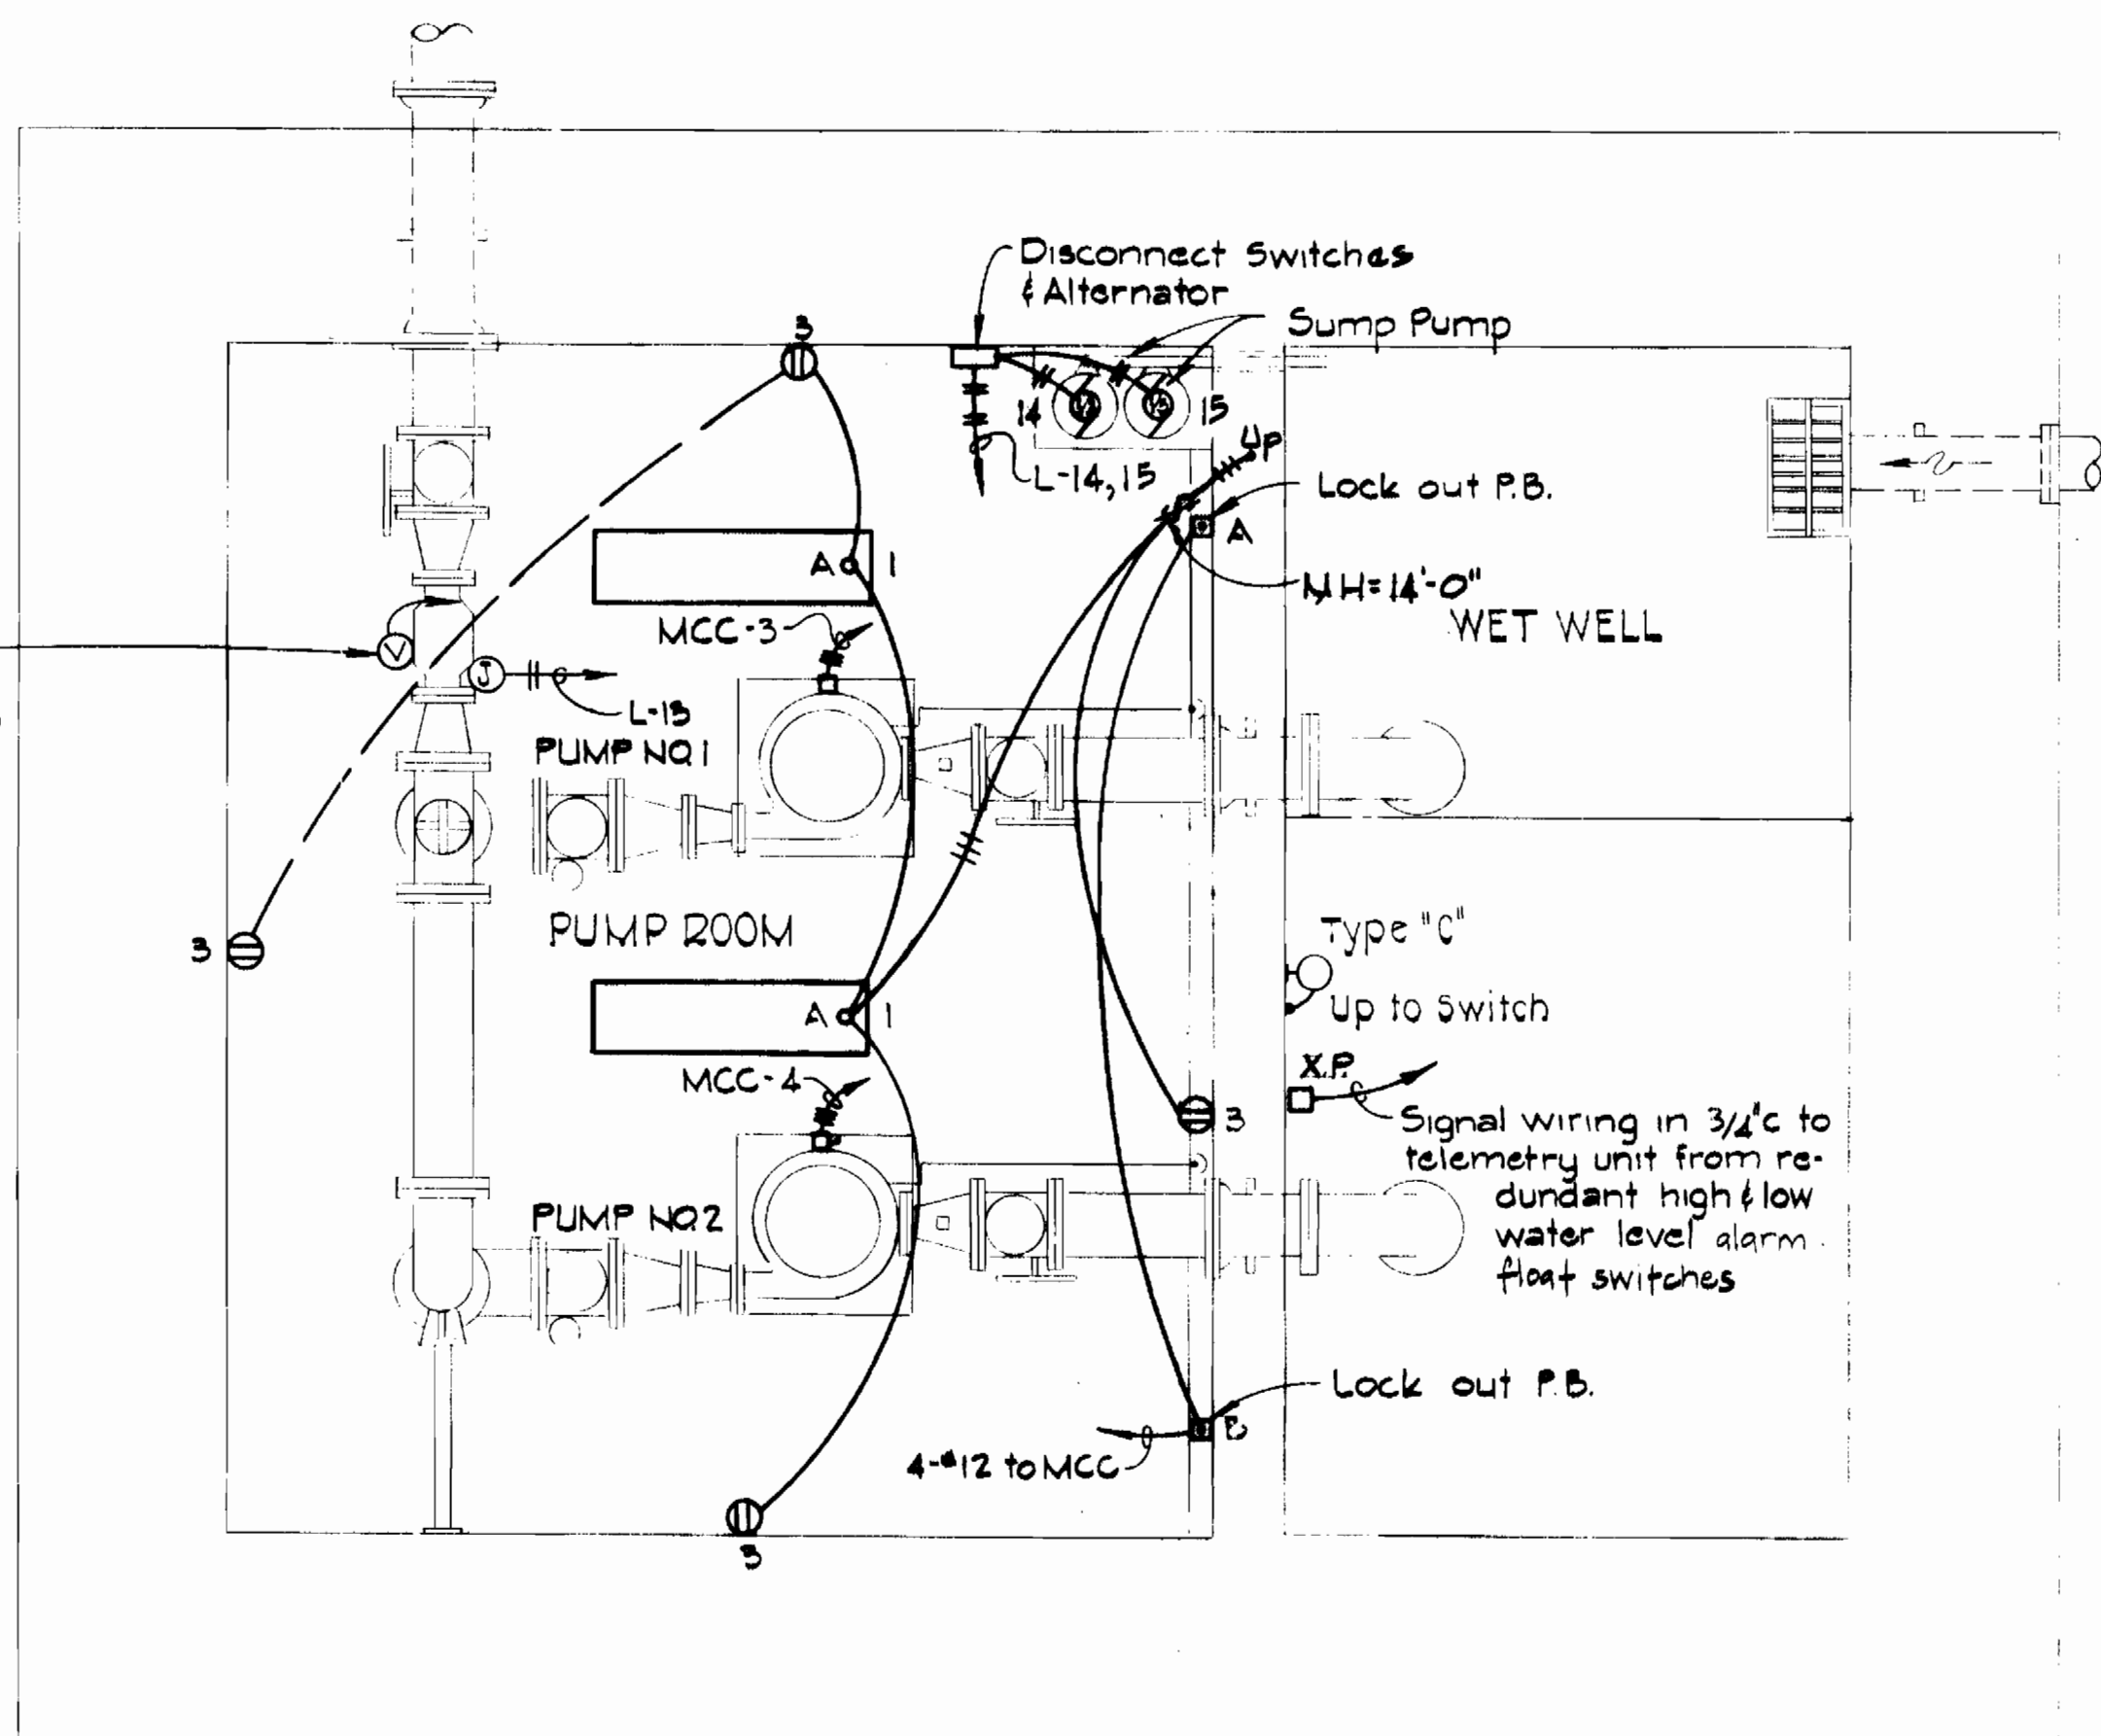 Disconnect Switches
& Alternator
Sump Pump
3
14
15
Up
L-14,15
Lock out P.B.
A
A
1
MH=14'-0"
WET WELL
MCC-3
V
J
L-13
PUMP NO.1
PUMP ROOM
3
Type "C"
Up to Switch
A
1
X.P.
MCC-4
3
Signal wiring in 3/4"c to
telemetry unit from re-
dundant high & low
water level alarm
float switches
PUMP NO.2
Lock out P.B.
B
4-#12 to MCC
3